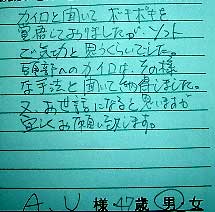 カイロと聞いてボキボキを
覚悟しておりましたが、ソフト
で気功と思うくらいでした。
頸部へのカイロは、その様
な手法と聞いて納得しました。
又、お世話になると思いますが
宜しくお願い致します。
A.U 様 47歳 男 女